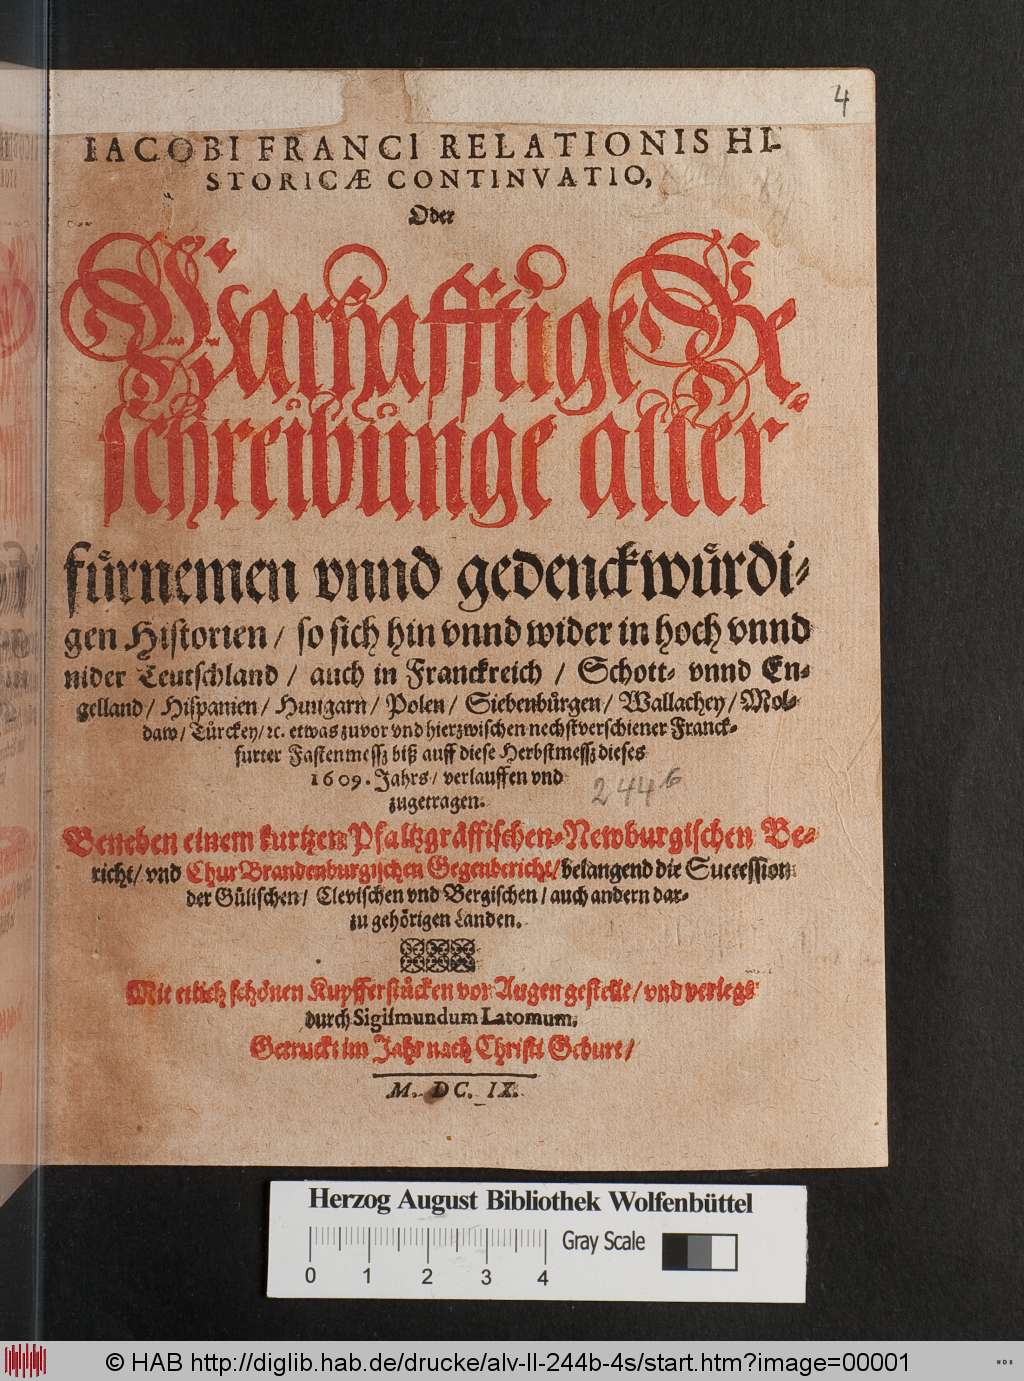 4
IACOBI FRANCI RELATIONIS HI-
STORICÆ CONTINVATIO,
Oder
Warhafftige Be-
schreibunge aller
fůrnemen vnnd gedenckwůrdi-
gen Historien / so sich hin vnnd wider in hoch vnnd
nider Teutschland / auch in Franckreich / Schott- vnnd En-
gelland / Hispanien / Hungarn / Polen / Siebenbůrgen / Wallachey / Mol-
daw / Tůrckey / ꝛc. etwas zuvor vnd hierzwischen nechstverschiener Franck-
furter Fastenmessz biß auff diese Herbstmessz dieses
1609. Jahrs / verlauffen vnd
zugetragen.
244b
Beneben einem kurtzen Pfaltzgräffischen-Newburgischen Be-
richt / vnd Chur Brandenburgischen Gegenbericht / belangend die Succession
der Gůlischen / Clevischen vnd Bergischen / auch andern dar-
zu gehörigen Landen.
Mit etlich schönen Kupfferstůcken vor Augen gestellt / vnd verlegt
durch Sigismundum Latomum.
Getruckt im Jahr nach Christi Geburt /
M. DC. IX.
Herzog August Bibliothek Wolfenbüttel
Gray Scale
0 1 2 3 4
© HAB http://diglib.hab.de/drucke/alv-ll-244b-4s/start.htm?image=00001